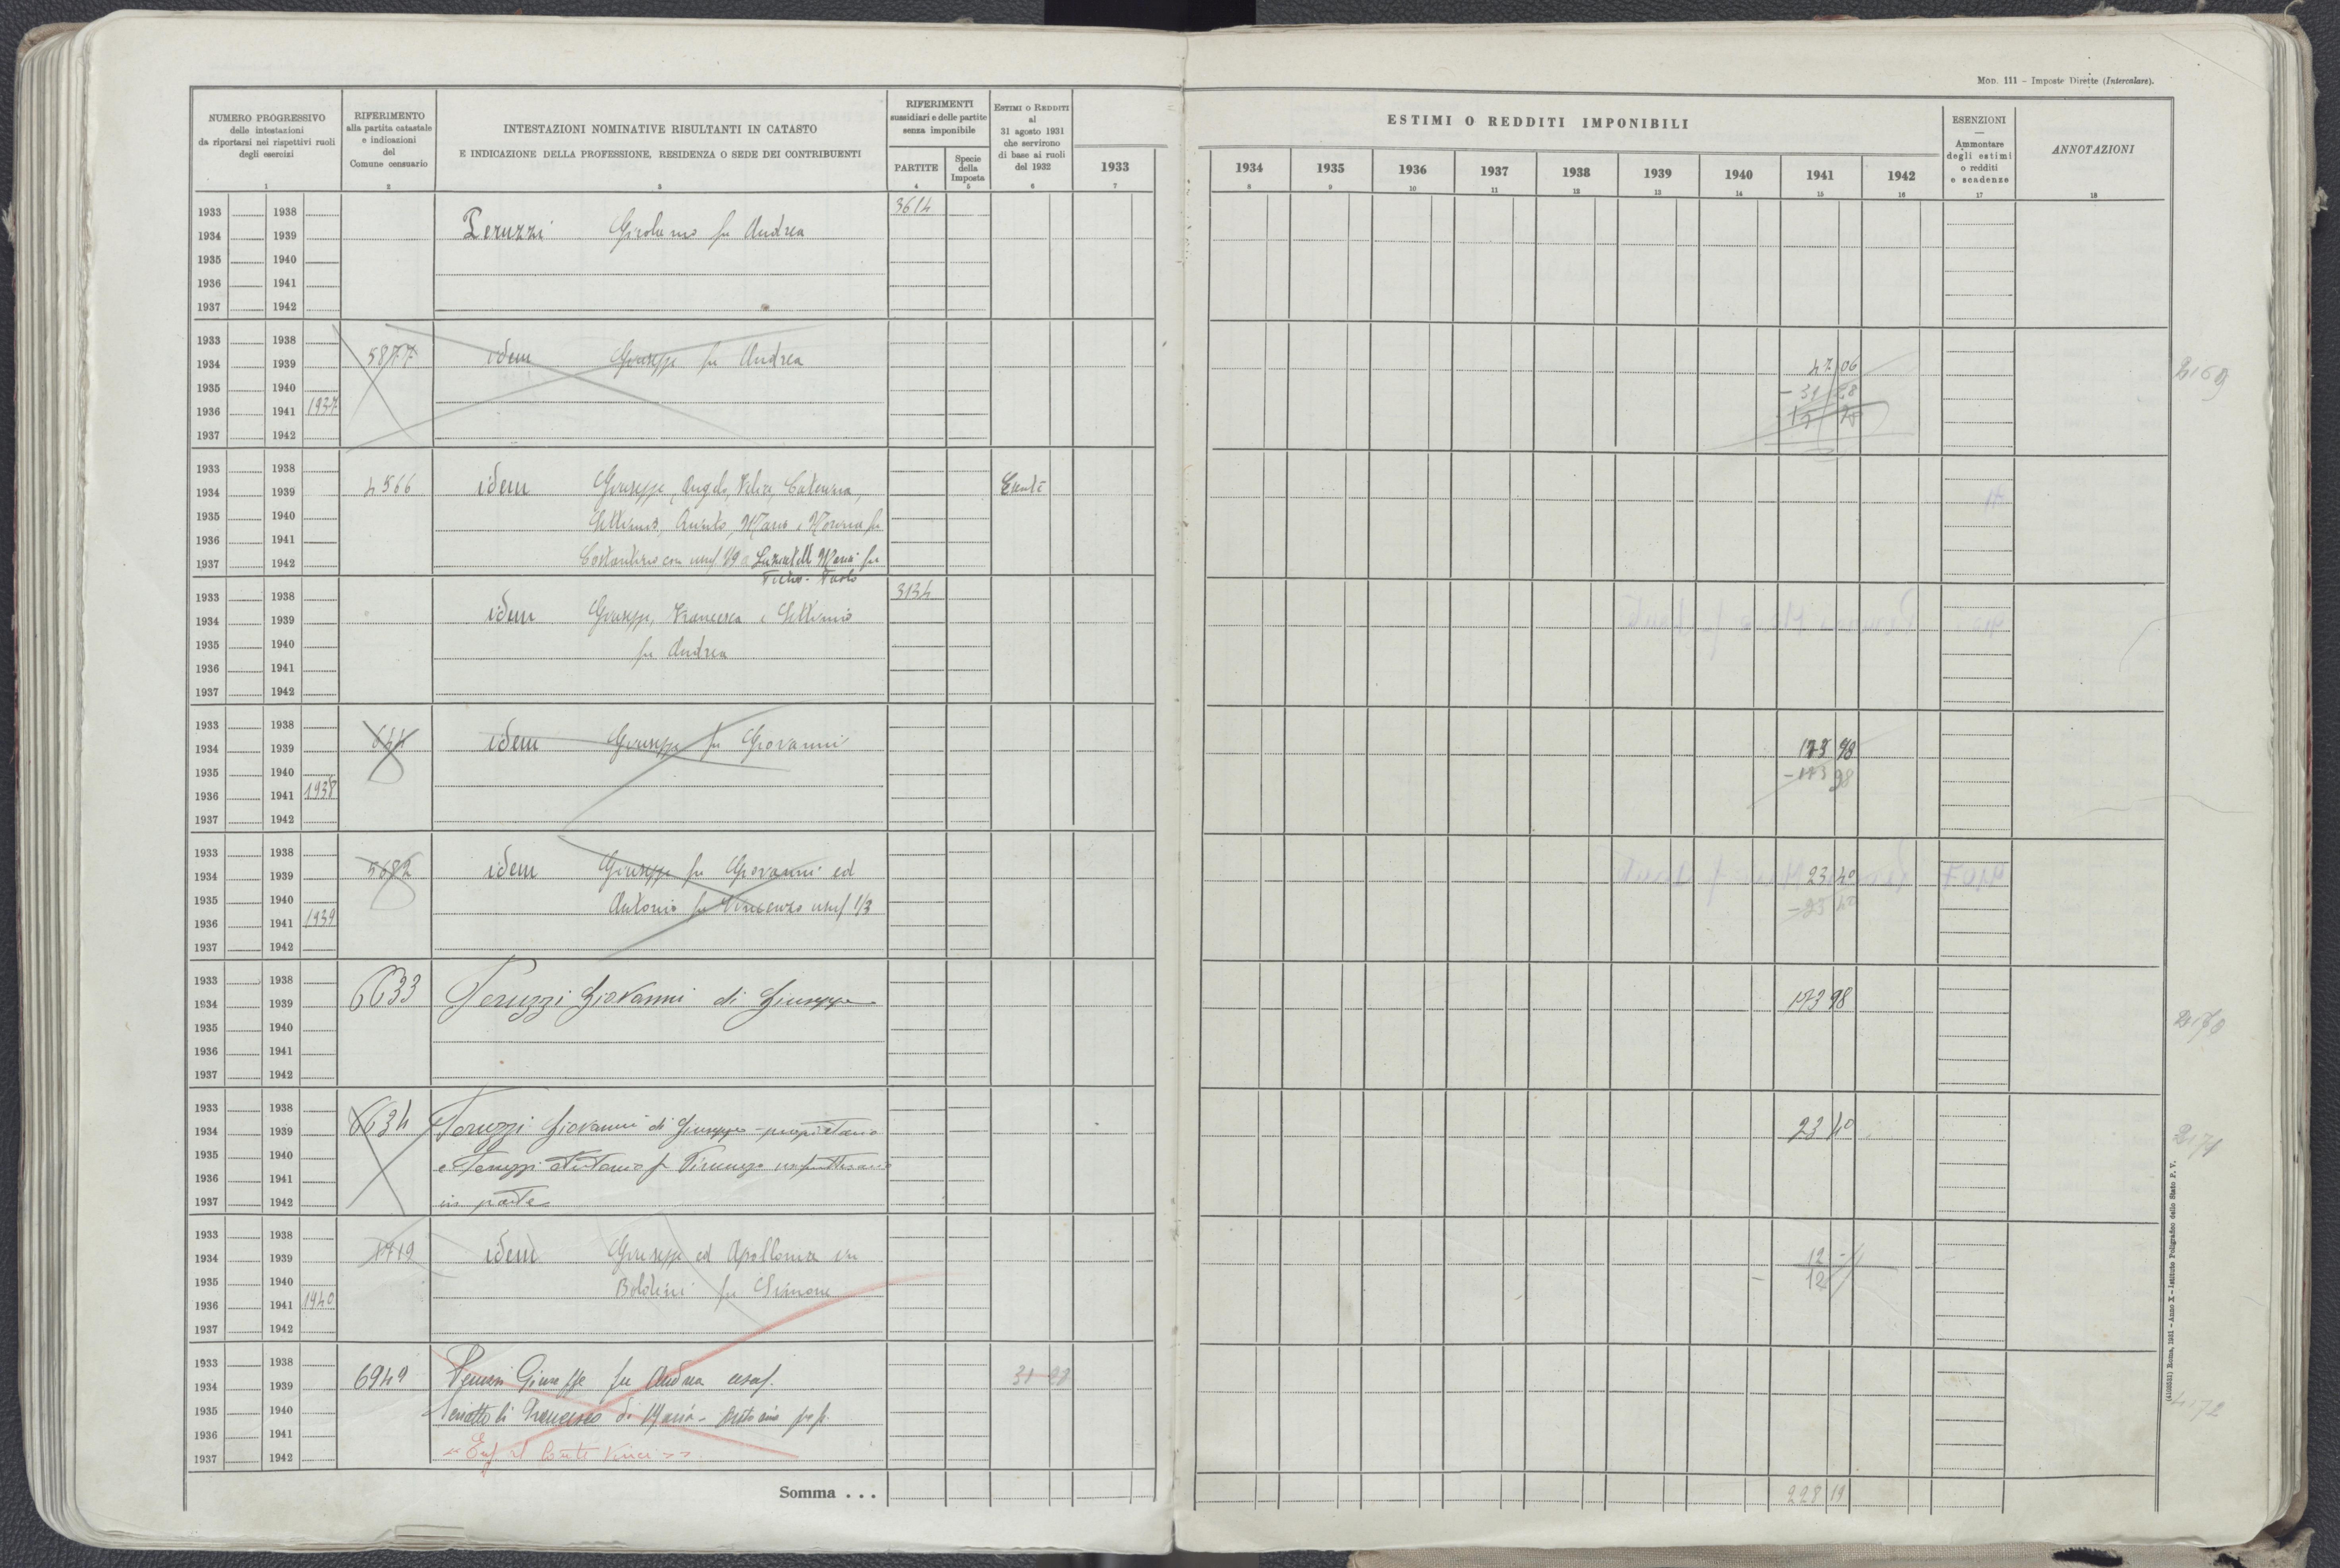 Mod. 111 – Imposte Dirette (Intercalare).
NUMERO PROGRESSIVO
delle intestazioni
da riportarsi nei rispettivi ruoli
degli esercizi
1
RIFERIMENTO
alla partita catastale
e indicazioni
del
Comune censuario
2
INTESTAZIONI NOMINATIVE RISULTANTI IN CATASTO
E INDICAZIONE DELLA PROFESSIONE, RESIDENZA O SEDE DEI CONTRIBUENTI
3
RIFERIMENTI
sussidiari e delle partite
senza imponibile
PARTITE
4
Specie
della
Imposta
5
ESTIMI O REDDITI
al
31 agosto 1931
che servirono
di base ai ruoli
del 1932
6
1933
7
ESTIMI O REDDITI IMPONIBILI
1934 1935 1936 1937 1938 1939 1940 1941 1942
8 9 10 11 12 13 14 15 16
ESENZIONI
—
Ammontare
degli estimi
o redditi
e scadenze
17
ANNOTAZIONI
18
3614
1933 1938
1934 1939 Peruzzi Girolamo fu Andrea
1935 1940
1936 1941
1937 1942
1933 1938
1934 1939 5877 idem Giuseppe fu Andrea 47 06 2169
1935 1940 - 31 28
1936 1941 1937
1937 1942
1933 1938
1934 1939 4566 idem Giuseppe, Angelo, Caterina,
1935 1940 Maria fu
1936 1941
1937 1942 Costantino con usuf 1/9 a Maria fu
Paolo
1933 1938 3134
1934 1939 idem Giuseppe, Francesca e Settimio
1935 1940 fu Andrea
1936 1941
1937 1942
1933 1938
1934 1939 644 idem Giuseppe fu Giovanni 173 98
1935 1940 - 173 98
1936 1941 1938
1937 1942
1933 1938
1934 1939 5682 idem Giuseppe fu Giovanni ed 23 40
1935 1940 Antonio fu Vincenzo usuf 1/3 - 23 40
1936 1941 1939
1937 1942
1933 1938
1934 1939 6633 Peruzzi Giovanni di Giuseppe 173 98 2170
1935 1940
1936 1941
1937 1942
1933 1938
1934 1939 6634 Peruzzi Giovanni di Giuseppe - proprietario 23 40 2171
1935 1940 e Peruzzi Antonio fu Vincenzo usufruttuario
1936 1941
1937 1942 in parte
1933 1938
1934 1939 1719 idem Giuseppe ed Apollonia in 12 -
1935 1940 Boldrini fu Simone - 12
1936 1941 1940
1937 1942
1933 1938
1934 1939 6949 Peruzzi Giuseppe fu Andrea usuf. 31 28
1935 1940 Francesco di Maria - Antonio prop. 2172
1936 1941
1937 1942
Somma . . . 228 19
(4103531) Roma, 1931 – Anno X – Istituto Poligrafico dello Stato P. V.